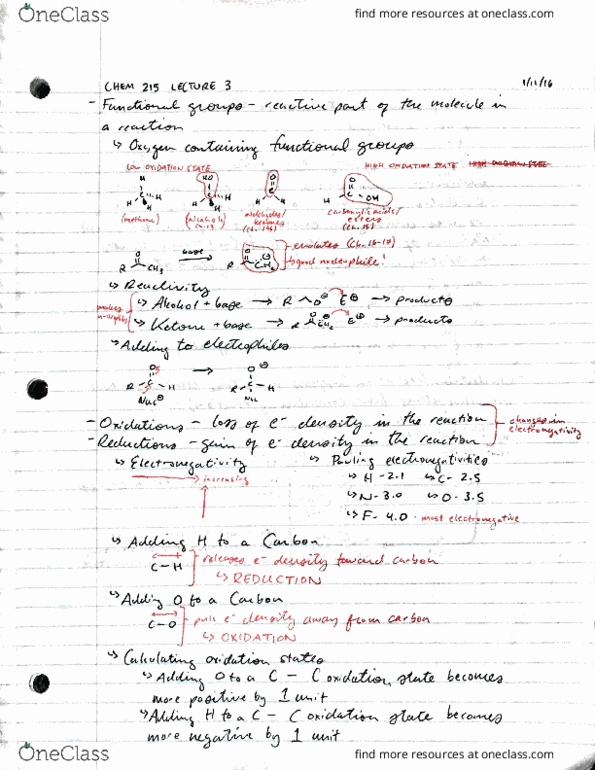 OneClass
find more resources at oneclass.com
CHEM 215 LECTURE 3 1/11/16
- Functional groups - reactive part of the molecule in
a reaction
↳ Oxygen containing functional groups
LOW OXIDATION STATE HIGH OXIDATION STATE
H HO O O
H C H H C H H H H OH
(methane) (Alcohols) aldehydes/ carboxylic acids/
ketones esters
(Ch. 15)
O base O ⊖ enolates (Ch. 16-17)
R CH3 → R CH2 ↳ good nucleophile!
↳ Reactivity
↳ Alcohol + base → R O⊖ E⊕ → products
↳ Ketone + base → R CH2 E⊕ → products
↳ Adding to electrophiles
O → O⊖
R - C - H R - C - H
Nuc⊖ Nuc
- Oxidations - loss of e⁻ density in the reaction
- Reductions - gain of e⁻ density in the reaction
changes in
electronegativity
↳ Electronegativity ↳ Pauling electronegativities
increasing ↳ H - 2.1 ↳ C - 2.5
↳ N - 3.0 ↳ O - 3.5
↳ F - 4.0 - most electronegative
↳ Adding H to a Carbon
C - H releases e⁻ density toward carbon
↳ REDUCTION
↳ Adding O to a Carbon
C - O pulls e⁻ density away from carbon
↳ OXIDATION
↳ Calculating oxidation states
↳ Adding O to a C - C oxidation state becomes
more positive by 1 unit
↳ Adding H to a C - C oxidation state becomes
more negative by 1 unit
OneClass
find more resources at oneclass.com